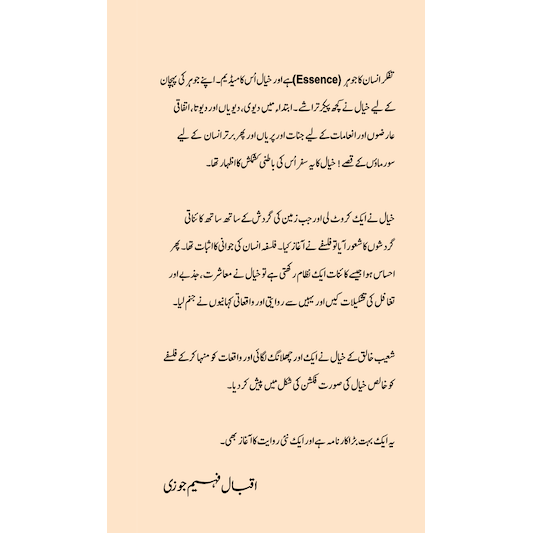 تفکر انسان کا جوہر (Essence) ہے اور خیال اُس کا میڈیم۔ اپنے جوہر کی پہچان
کے لیے خیال نے کچھ پیکر تراشے۔ ابتداء میں دیوی، دیویاں اور دیوتا، اتفاقی
عارضوں اور انعامات کے لیے جنات اور پریاں اور پھر برتر انسان کے لیے
سورماؤں کے قصے! خیال کا یہ سفر اُس کی باطنی کشمکش کا اظہار تھا۔
خیال نے ایک کروٹ لی اور جب زمین کی گردش کے ساتھ ساتھ کائناتی
گردشوں کا شعور آیا تو فلسفے نے آغاز کیا۔ فلسفہ انسان کی جوانی کا اثبات تھا۔ پھر
احساس ہوا جیسے کائنات ایک نظام رکھتی ہے تو خیال نے معاشرت، جذبے اور
تغافل کی تشکیلات کیں اور یہیں سے روایتی اور واقعاتی کہانیوں نے جنم لیا۔
شعیب خالق کے خیال نے ایک اور چھلانگ لگائی اور واقعات کو منہا کر کے فلسفے
کو خالص خیال کی صورت فکشن کی شکل میں پیش کر دیا۔
یہ ایک بہت بڑا کارنامہ ہے اور ایک نئی روایت کا آغاز بھی۔
اقبال فہیم جوزی